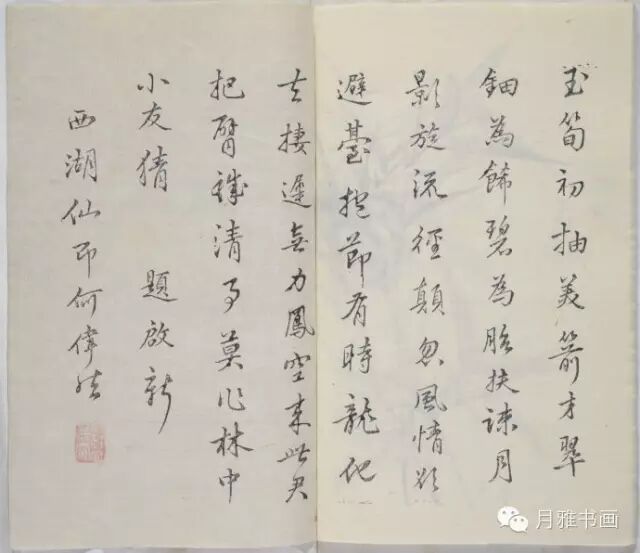 玉筍初抽美箭才翠
鈿為飾碧為胎扶疎月
影旋流徑顛忽風情欲
避臺抱節有時龍化
去棲遲無力鳳空來此君
把臂誠清事莫作林中
小友猜 題啟新
西湖仙郎何偉然
月雅书画